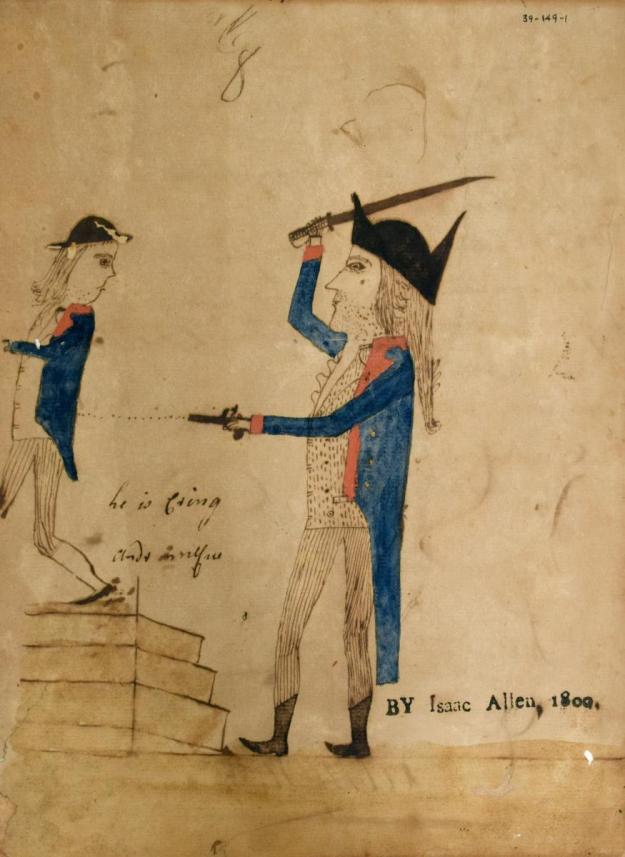 39-149-1
8
he is Cring
and
BY Isaac Allen, 1800.